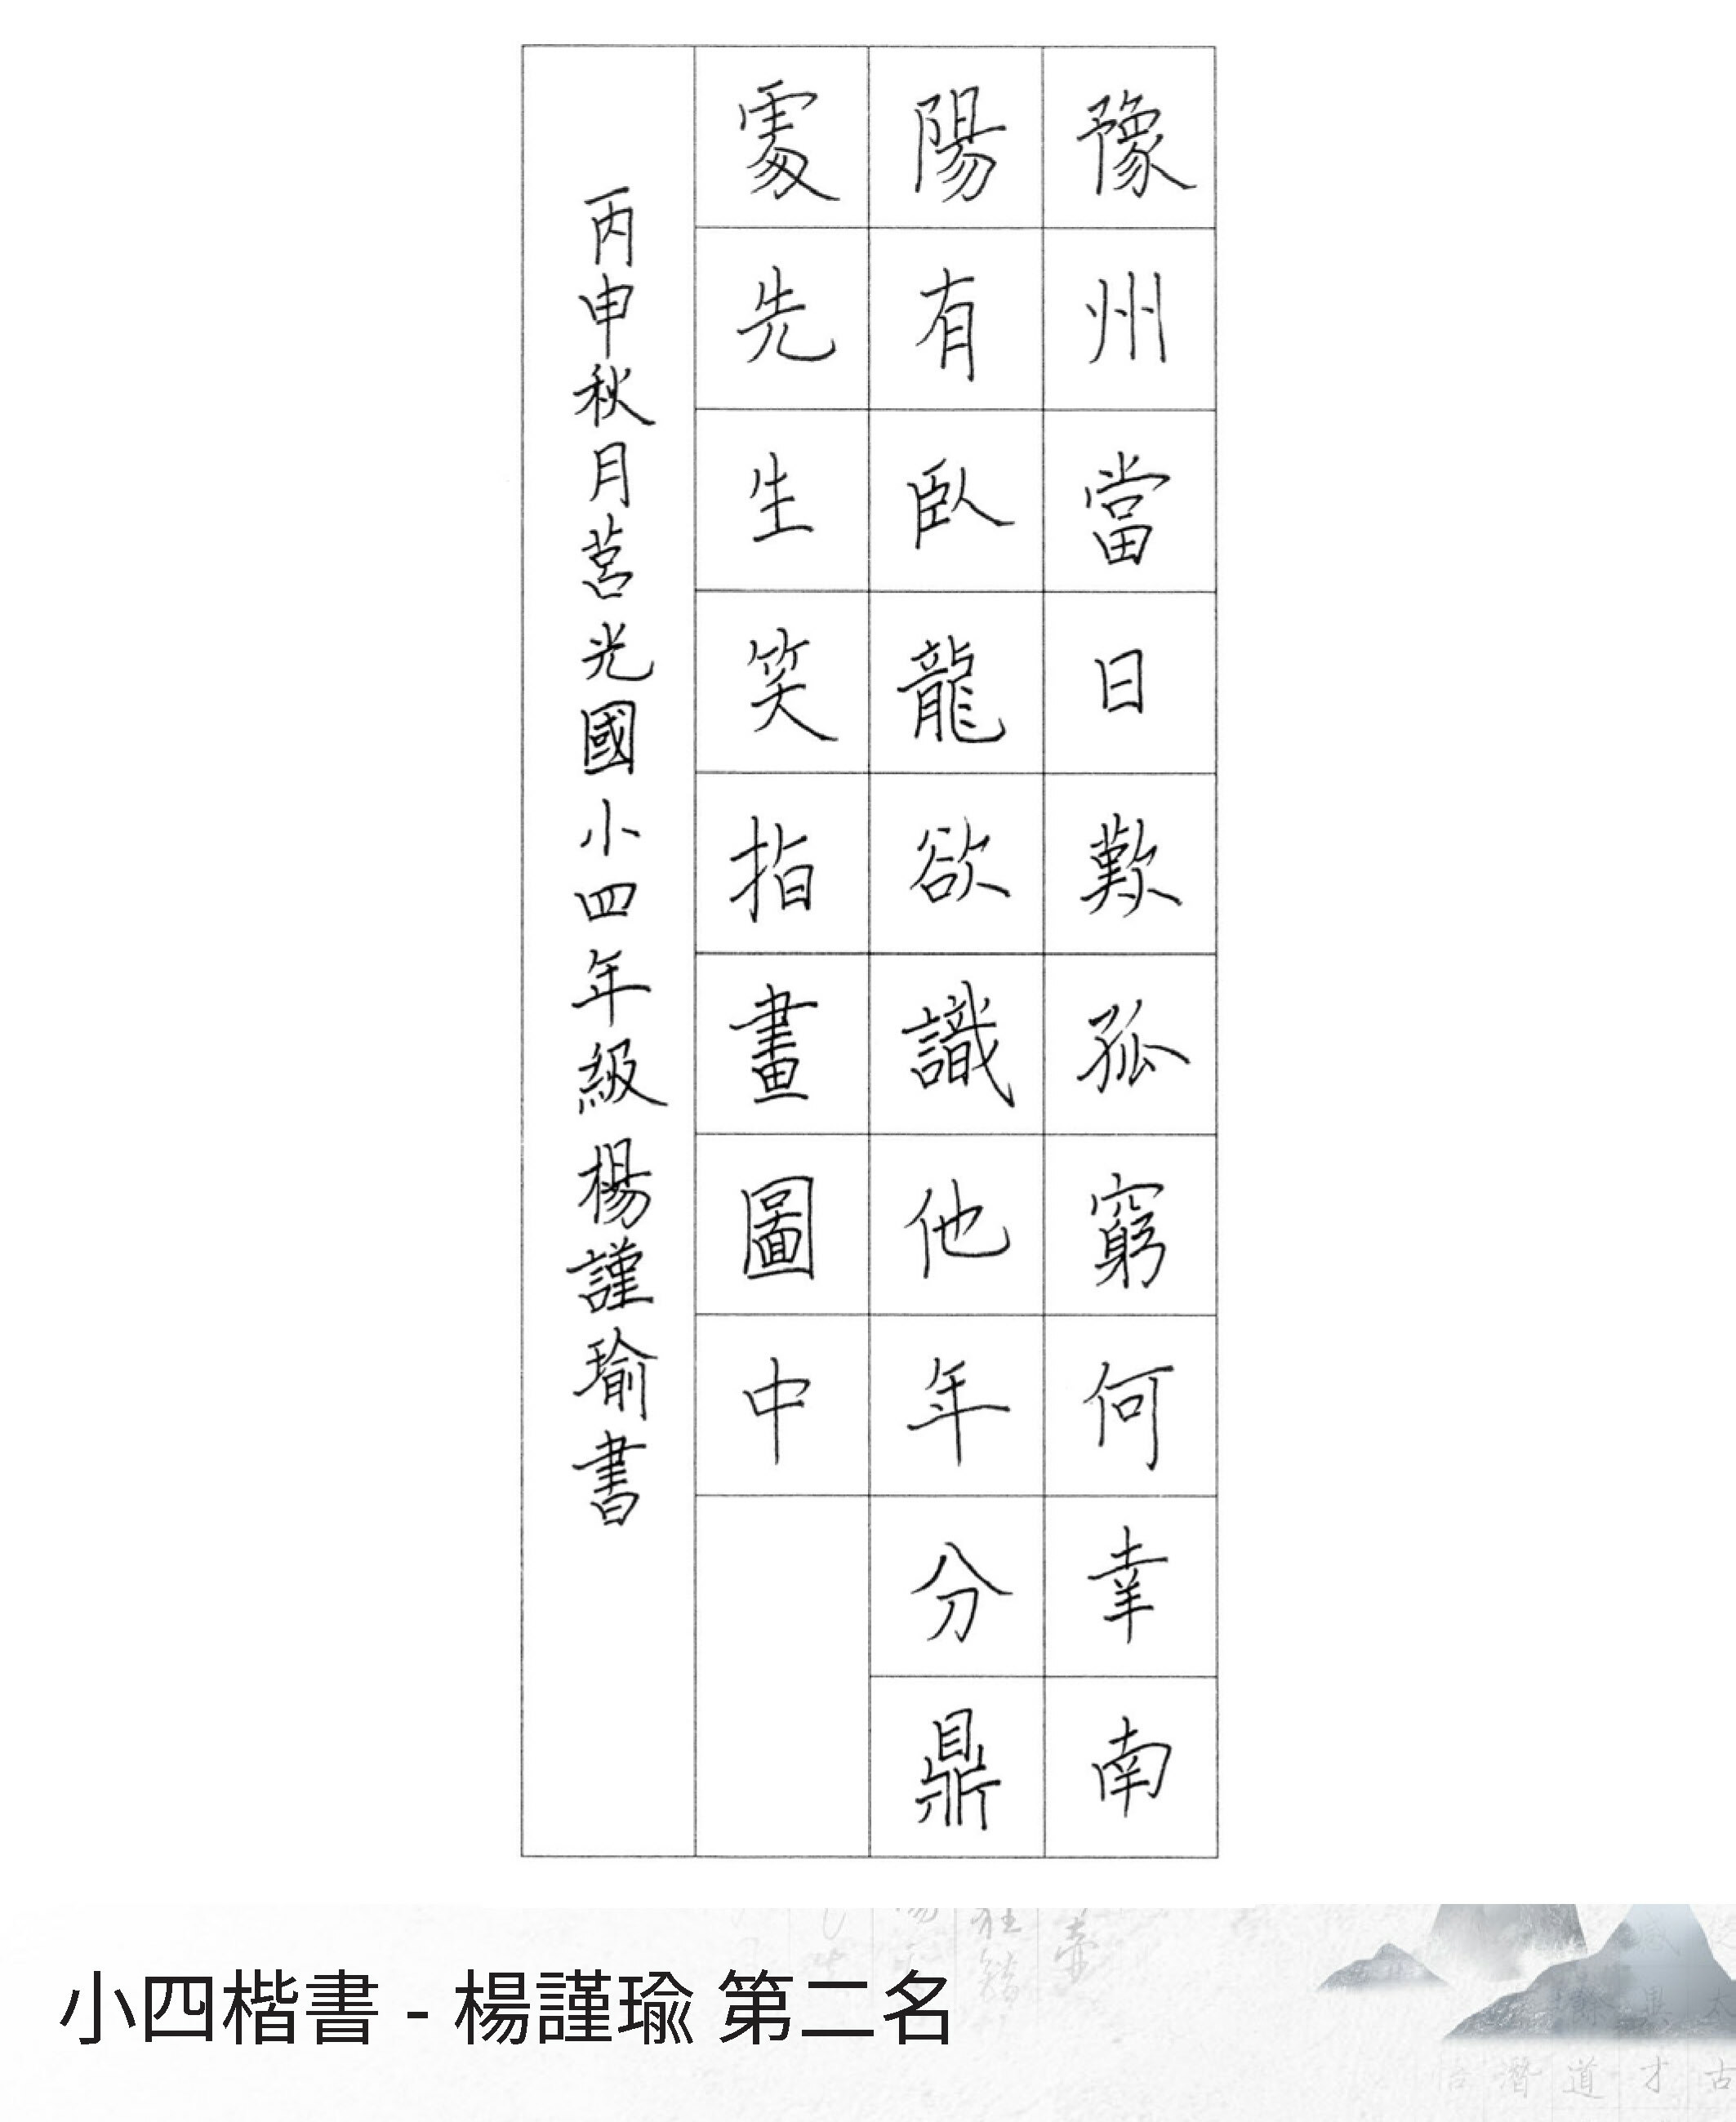 豫州當日歎孤窮何幸南
陽有臥龍欲識他年分鼎
處先生笑指畫圖中
丙申秋月莒光國小四年級楊謹瑜書
小四楷書 - 楊謹瑜 第二名